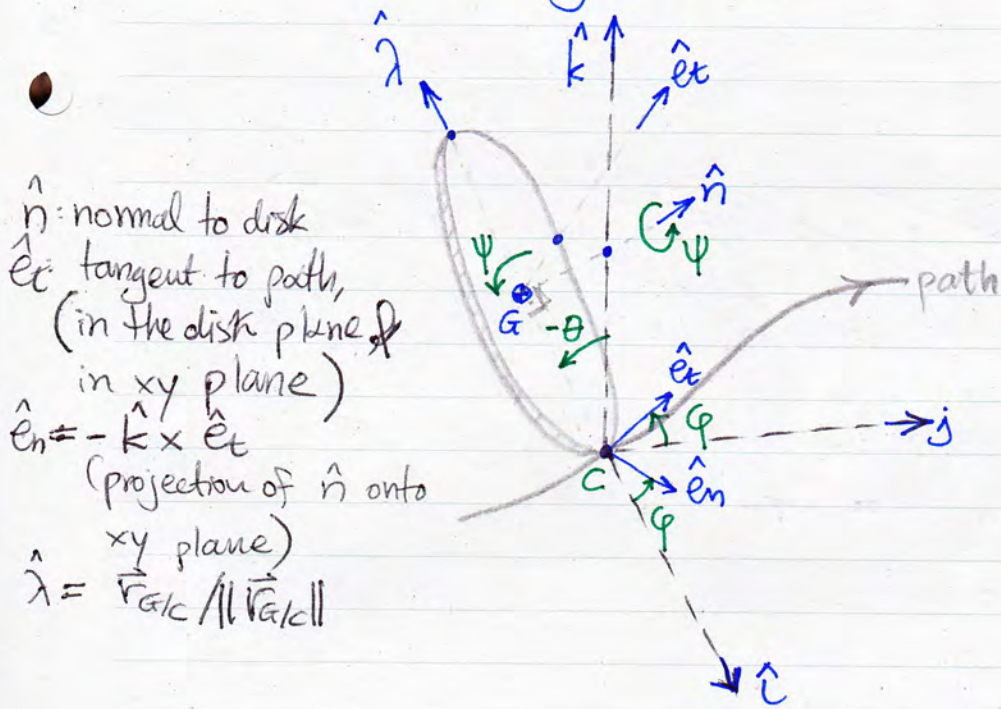 n̂: normal to disk
êt: tangent to path,
(in the disk plane &
in xy plane)
ên = - k̂ × êt
(projection of n̂ onto
xy plane)
λ̂ = r⃗G/C / || r⃗G/C ||
λ̂
k̂
êt
n̂
ψ
ψ
G
-θ
path
êt
φ
j
C
ên
φ
î